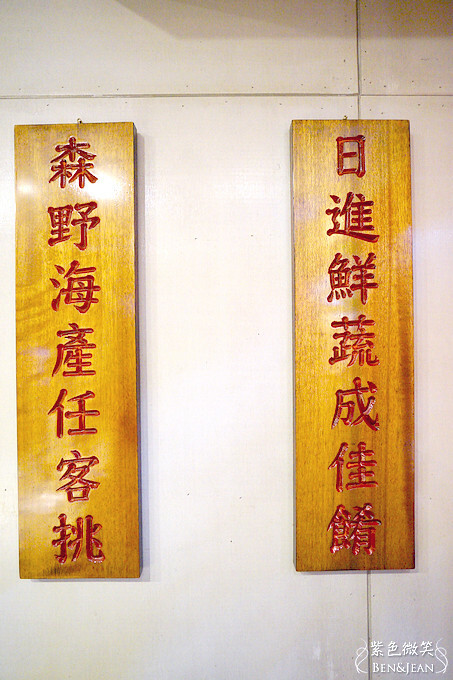 日進鮮蔬成佳餚
森野海產任客挑
紫色微笑
BEN&JEAN